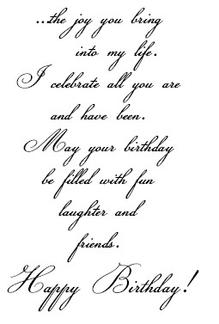 ...the joy you bring
into my life.
I celebrate all you are
and have been.
May your birthday
be filled with fun
laughter and
friends.
Happy Birthday!